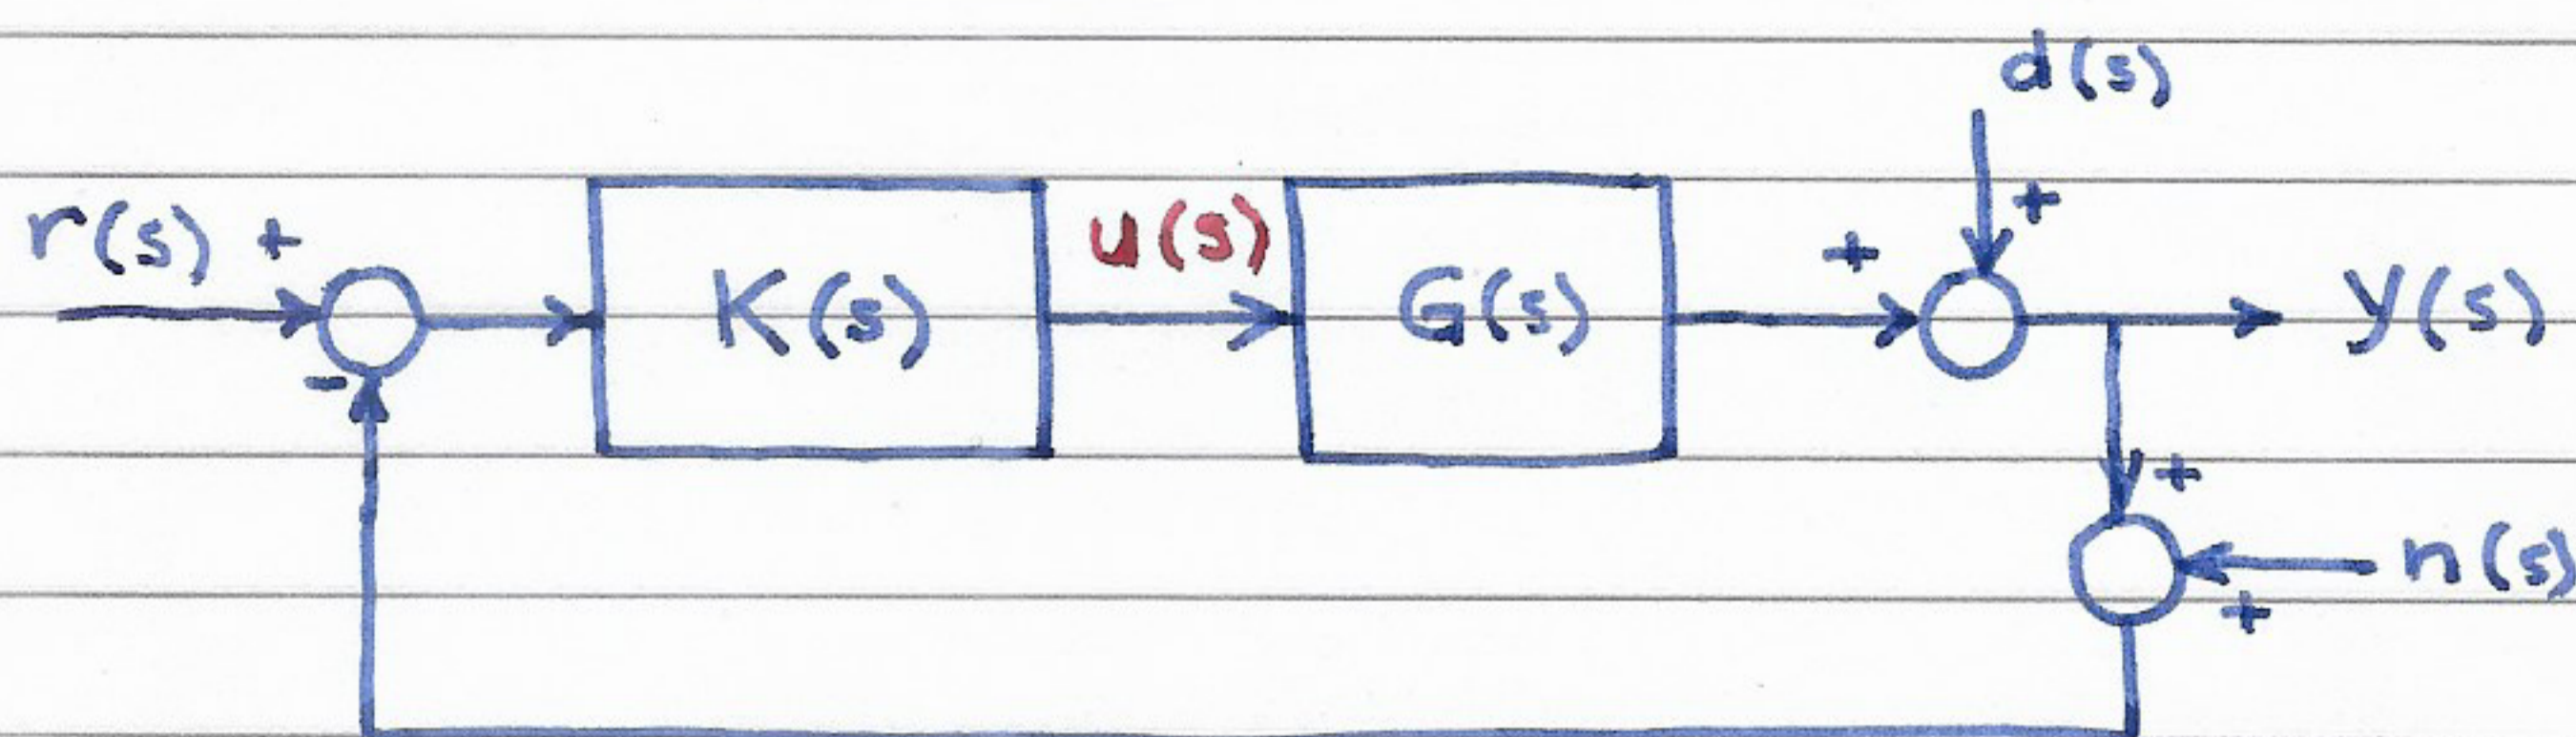 d(s)
+
r(s) + K(s) u(s) G(s) + y(s)
-
+
n(s)
+